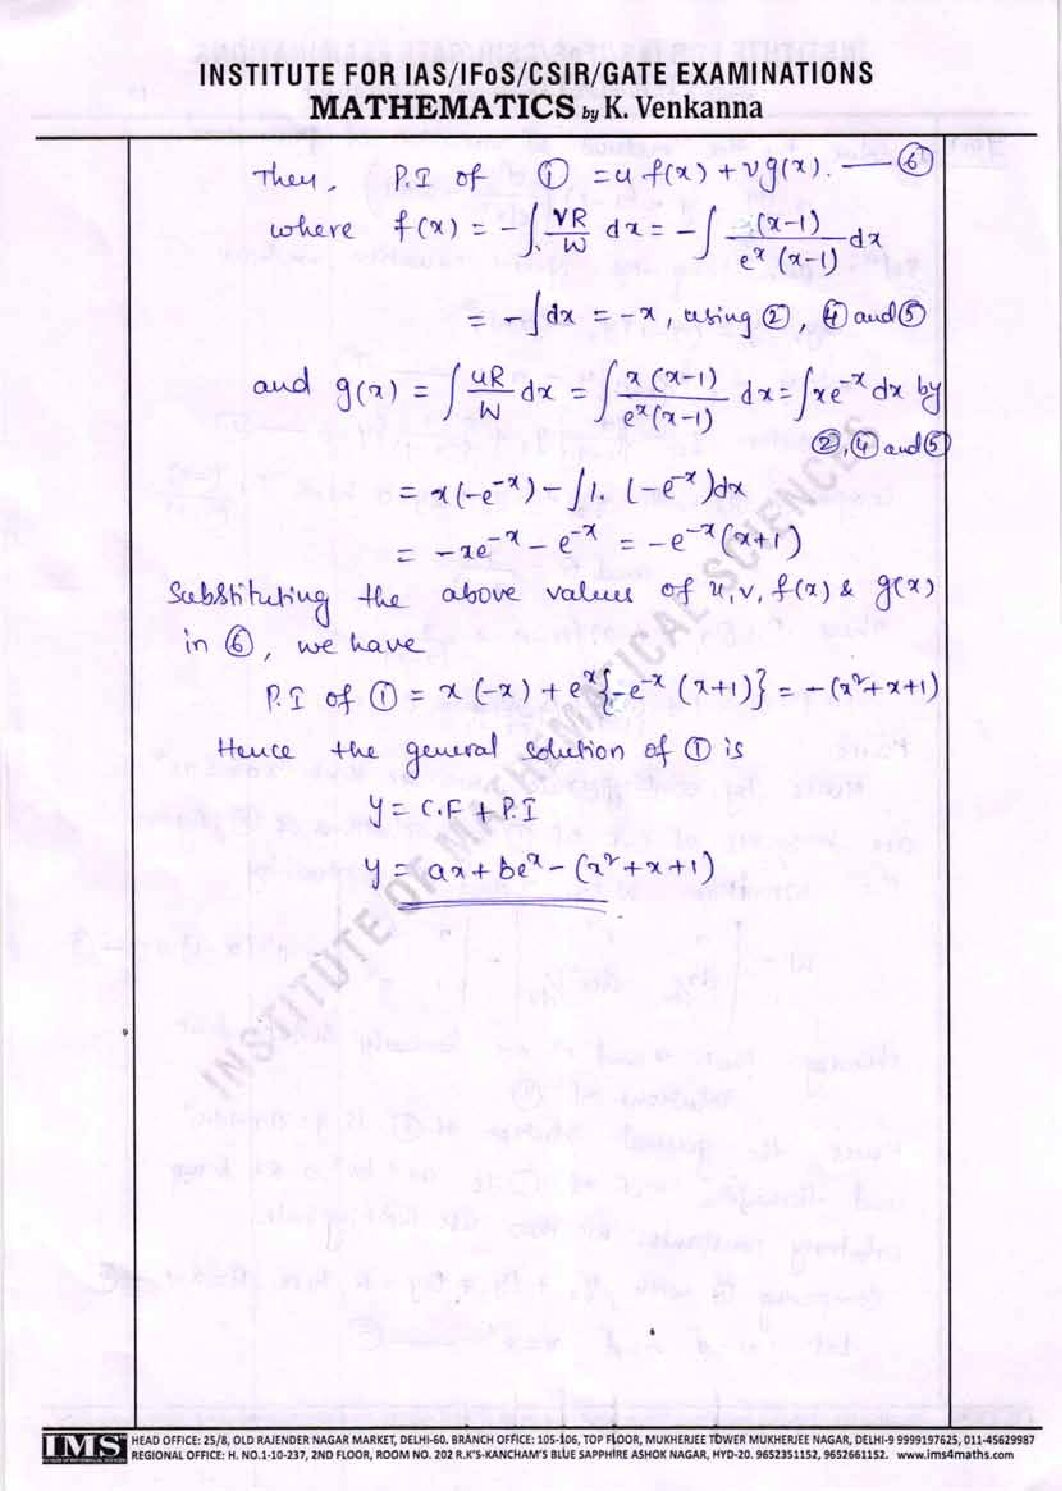 INSTITUTE FOR IAS/IFoS/CSIR/GATE EXAMINATIONS
MATHEMATICS by K. Venkanna
Then, P.I of ① = u f(x) + v g(x). — ⑥
where f(x) = -∫ VR/W dx = -∫ (x-1)/(e^x (x-1)) dx
= -∫dx = -x, using ②, ④ and ⑤
and g(x) = ∫ uR/W dx = ∫ x(x-1)/(e^x(x-1)) dx = ∫xe^-x dx by
②, ④ and ⑤
= x(-e^-x) - ∫1. (-e^-x)dx
= -xe^-x - e^-x = -e^-x(x+1)
Substituting the above values of u, v, f(x) & g(x)
in ⑥, we have
P.I of ① = x(-x) + e^x{-e^-x (x+1)} = -(x²+x+1)
Hence the general solution of ① is
y = C.F + P.I
y = ax + be^x - (x²+x+1)
INSTITUTE OF MATHEMATICAL SCIENCES
IMS
HEAD OFFICE: 25/8, OLD RAJENDER NAGAR MARKET, DELHI-60. BRANCH OFFICE: 105-106, TOP FLOOR, MUKHERJEE TOWER MUKHERJEE NAGAR, DELHI-9 9999197625, 011-45629987
REGIONAL OFFICE: H. NO.1-10-237, 2ND FLOOR, ROOM NO. 202 R.K'S-KANCHAM'S BLUE SAPPHIRE ASHOK NAGAR, HYD-20. 9652351152, 9652661152. www.ims4maths.com